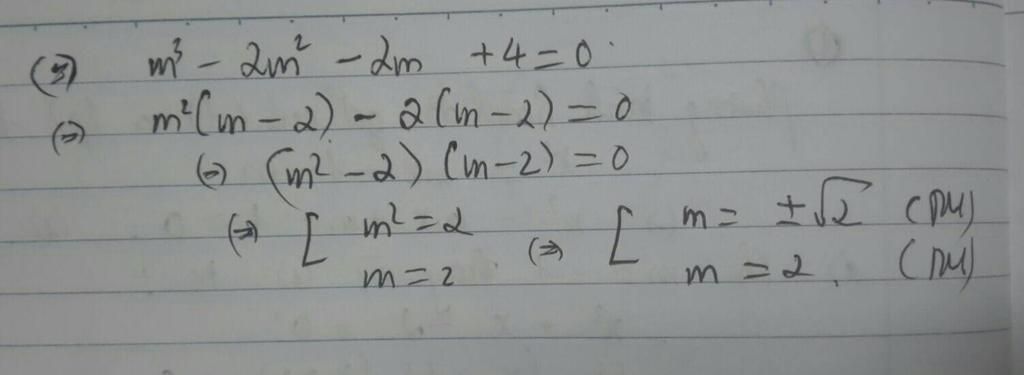 (⇔) m³ - 2m² - 2m + 4 = 0
(⇔) m²(m - 2) - 2(m - 2) = 0
(⇔) (m² - 2)(m - 2) = 0
(⇔) [ m² = 2 (⇔) [ m = ±√2 (TM)
m = 2 m = 2. (TM)